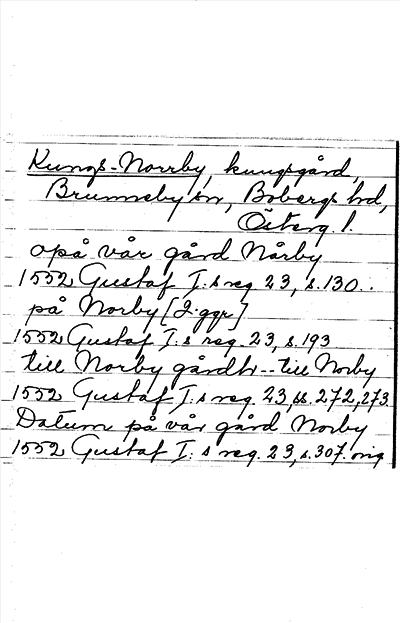 Kungs-Norrby, kungsgård,
Brunneby sn, Bobergs hd,
Österg. l.
opå vår gård Nårby
1552 Gustaf I:s reg. 23, s. 130.
på Norby [2 ggr]
1552 Gustaf I:s reg. 23, s. 193
till Norby gårdh -- till Norby
1552 Gustaf I:s reg. 23, ss. 272, 273.
Datum på vår gård Norby
1552 Gustaf I:s reg. 23, s. 307. orig